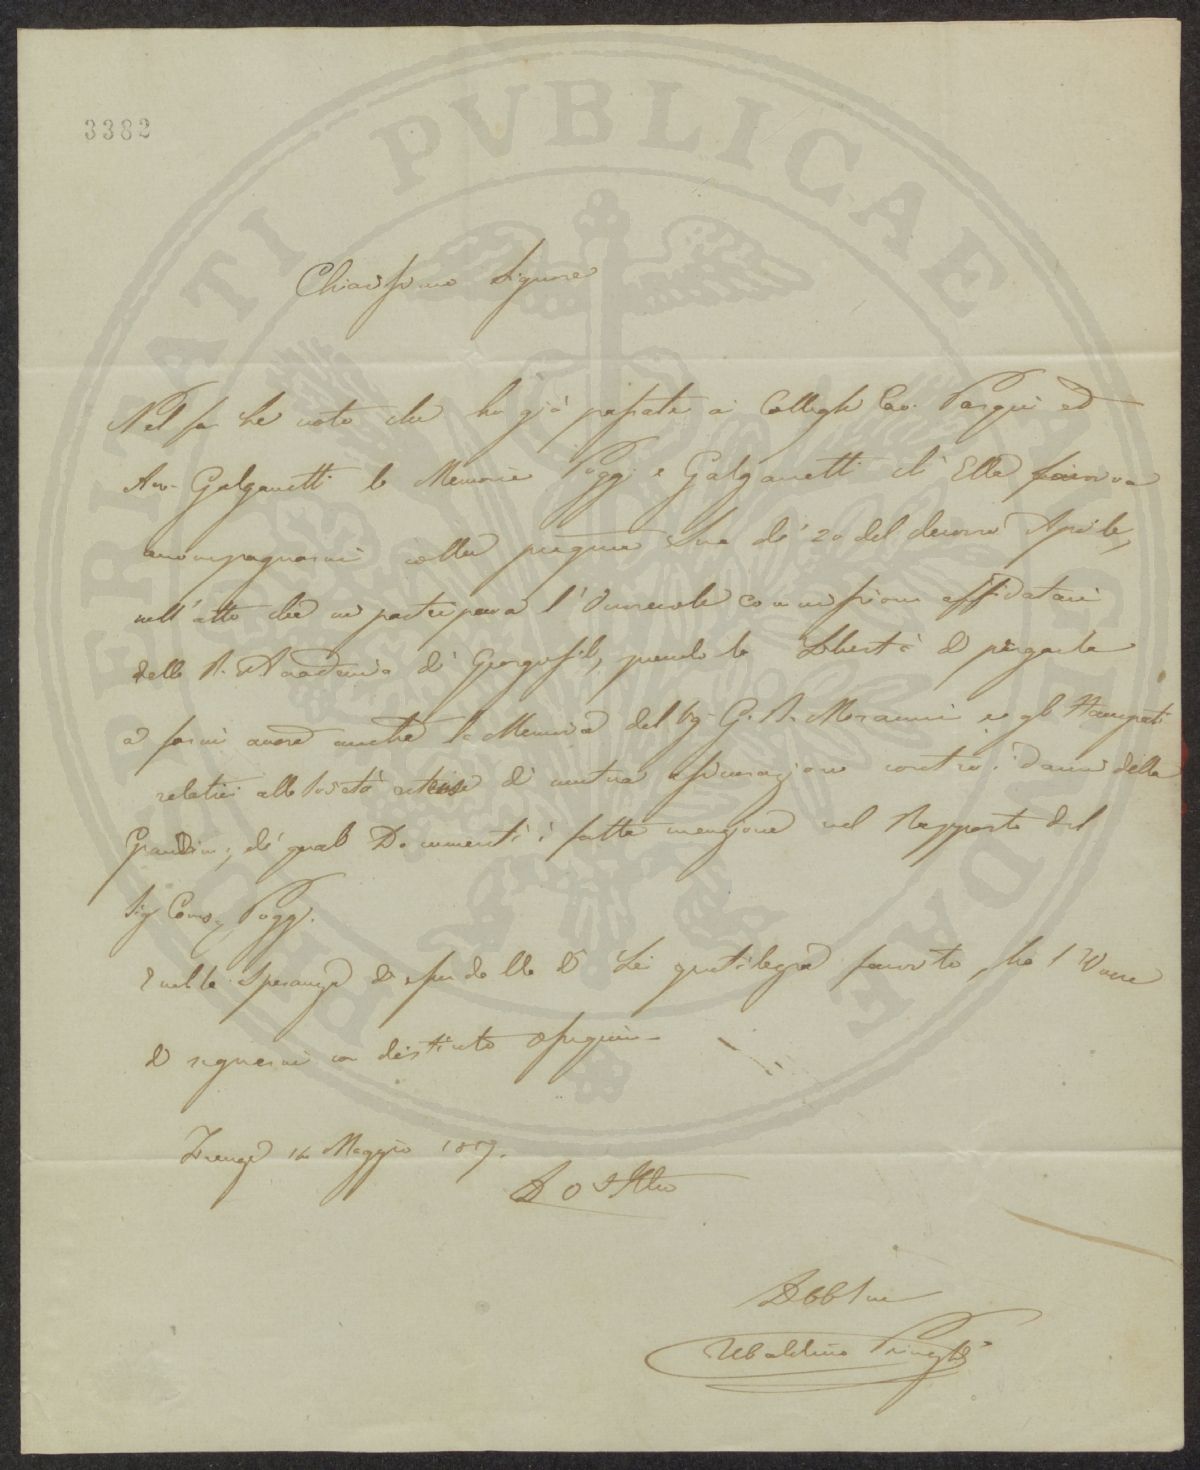 3382
PROSPERITATI PVBLICAE AVGENDAE
Chiarissimo Signore
Nel far Le noto che ho già passate ai Colleghi Cav. Pasqui ed
Avv. Galganetti le Memorie Poggi e Galganetti ch'Ella favoriva
accompagnarmi colla pregiata Sua de' 20 del decorso Aprile,
nell'atto che mi partecipava l'Onorevole commissione affidatami
dalla R. Accademia de' Georgofili, prendo la Libertà di pregarla
a farmi avere anche la Memoria del Sig. G. B. e gli Stampati
relativi alla Società di mutua assicurazione contro i danni della
Grandine, de' quali Documenti è fatta menzione nel Rapporto del
Sig. Cons. Poggi.
E nella Speranza di Lei favorito, ho l'Onore
di segnarmi con distinto ossequio
Firenze 14 Maggio
Di V. S. Illma
Devmo
Ubaldino